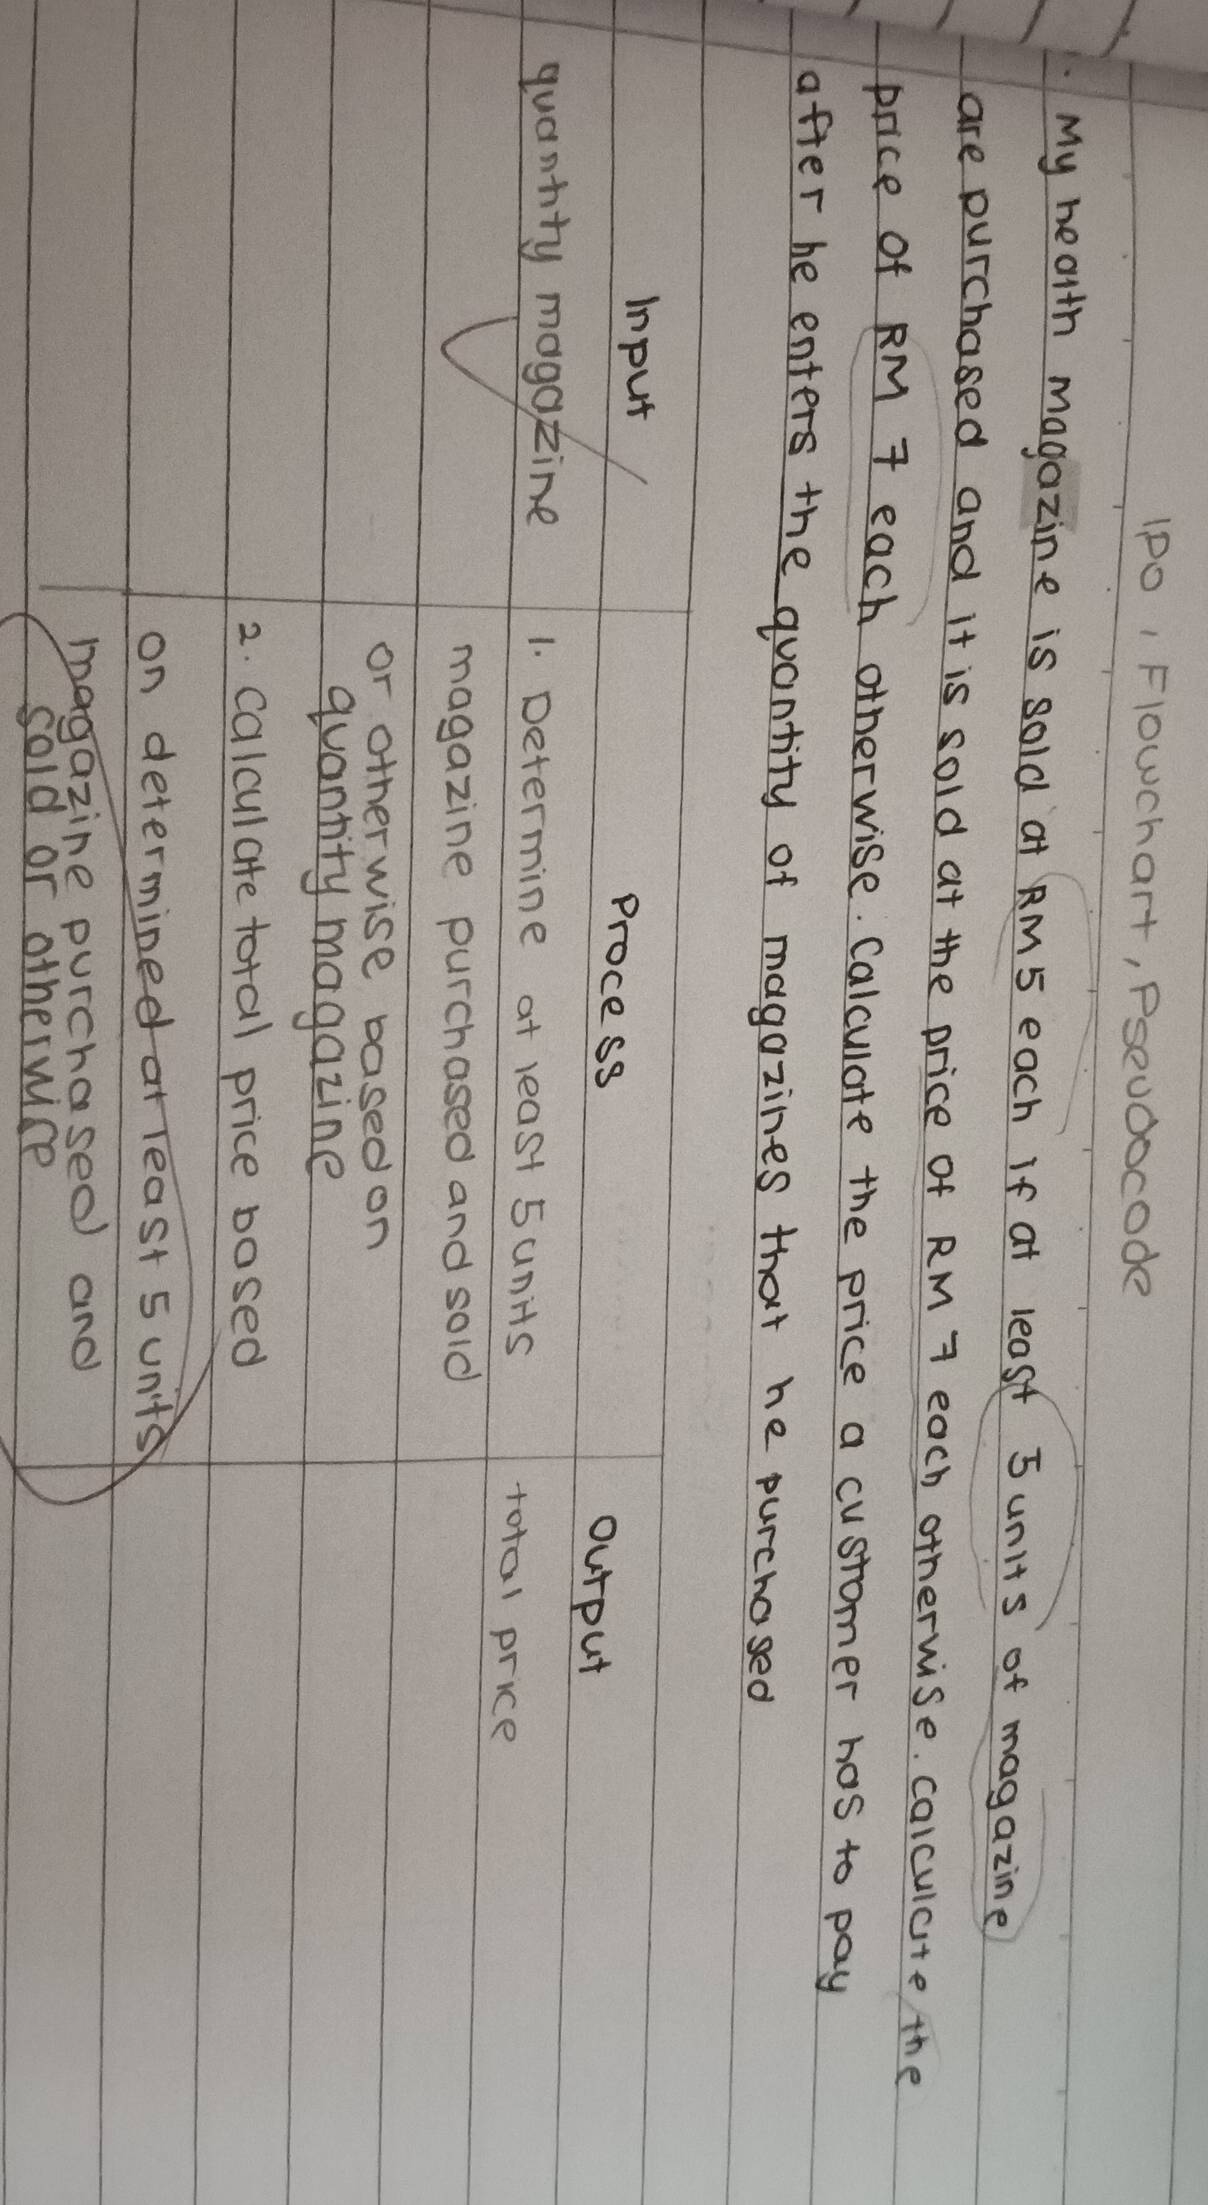 IPO, Flowchart, Pseudocode
. My health magazine is sold at RM5 each if at least 5 units of magazine
are purchased and it is sold at the price of RM 7 each otherwise. calculate the
price of RM 7 each otherwise. Calculate the price a customer has to pay
after he enters the quantity of magazines that he purchased
Input Process Output
quantity magazine 1. Determine at least 5 units total price
magazine purchased and sold
or otherwise based on
quantity magazine
2. Calculate total price based
on determined at least 5 units
magazine purchased and
sold or otherwise